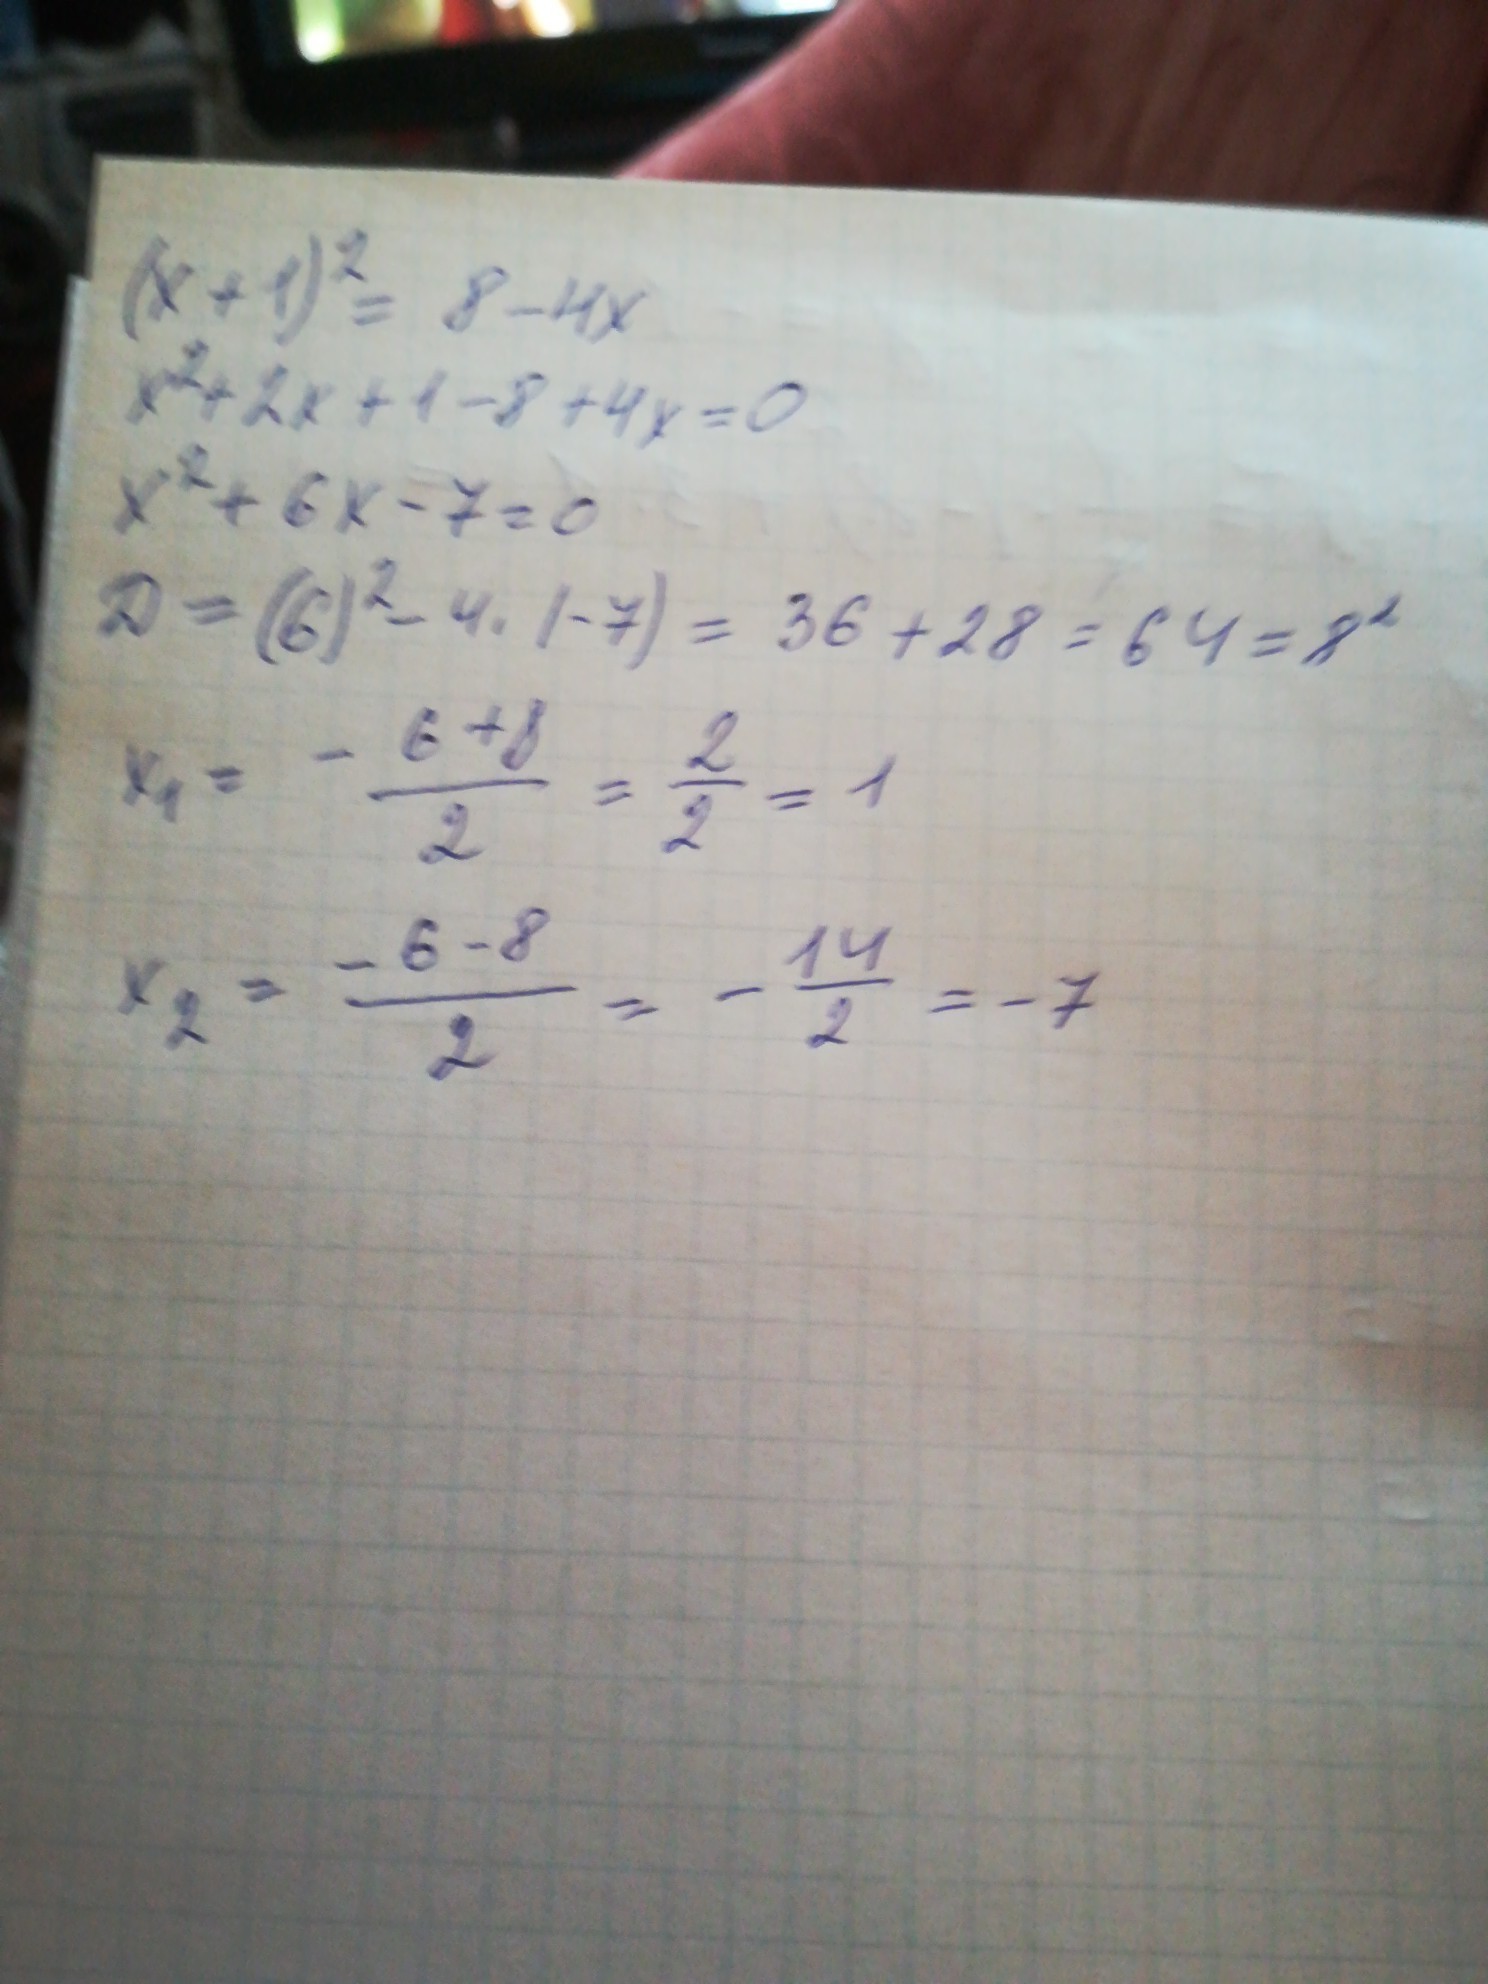 (x+1)² = 8-4x
x²+2x+1-8+4x=0
x²+6x-7=0
D=(6)²-4·(-7)=36+28=64=8²
x₁= -6+8/2 = 2/2 = 1
x₂ = -6-8/2 = -14/2 = -7